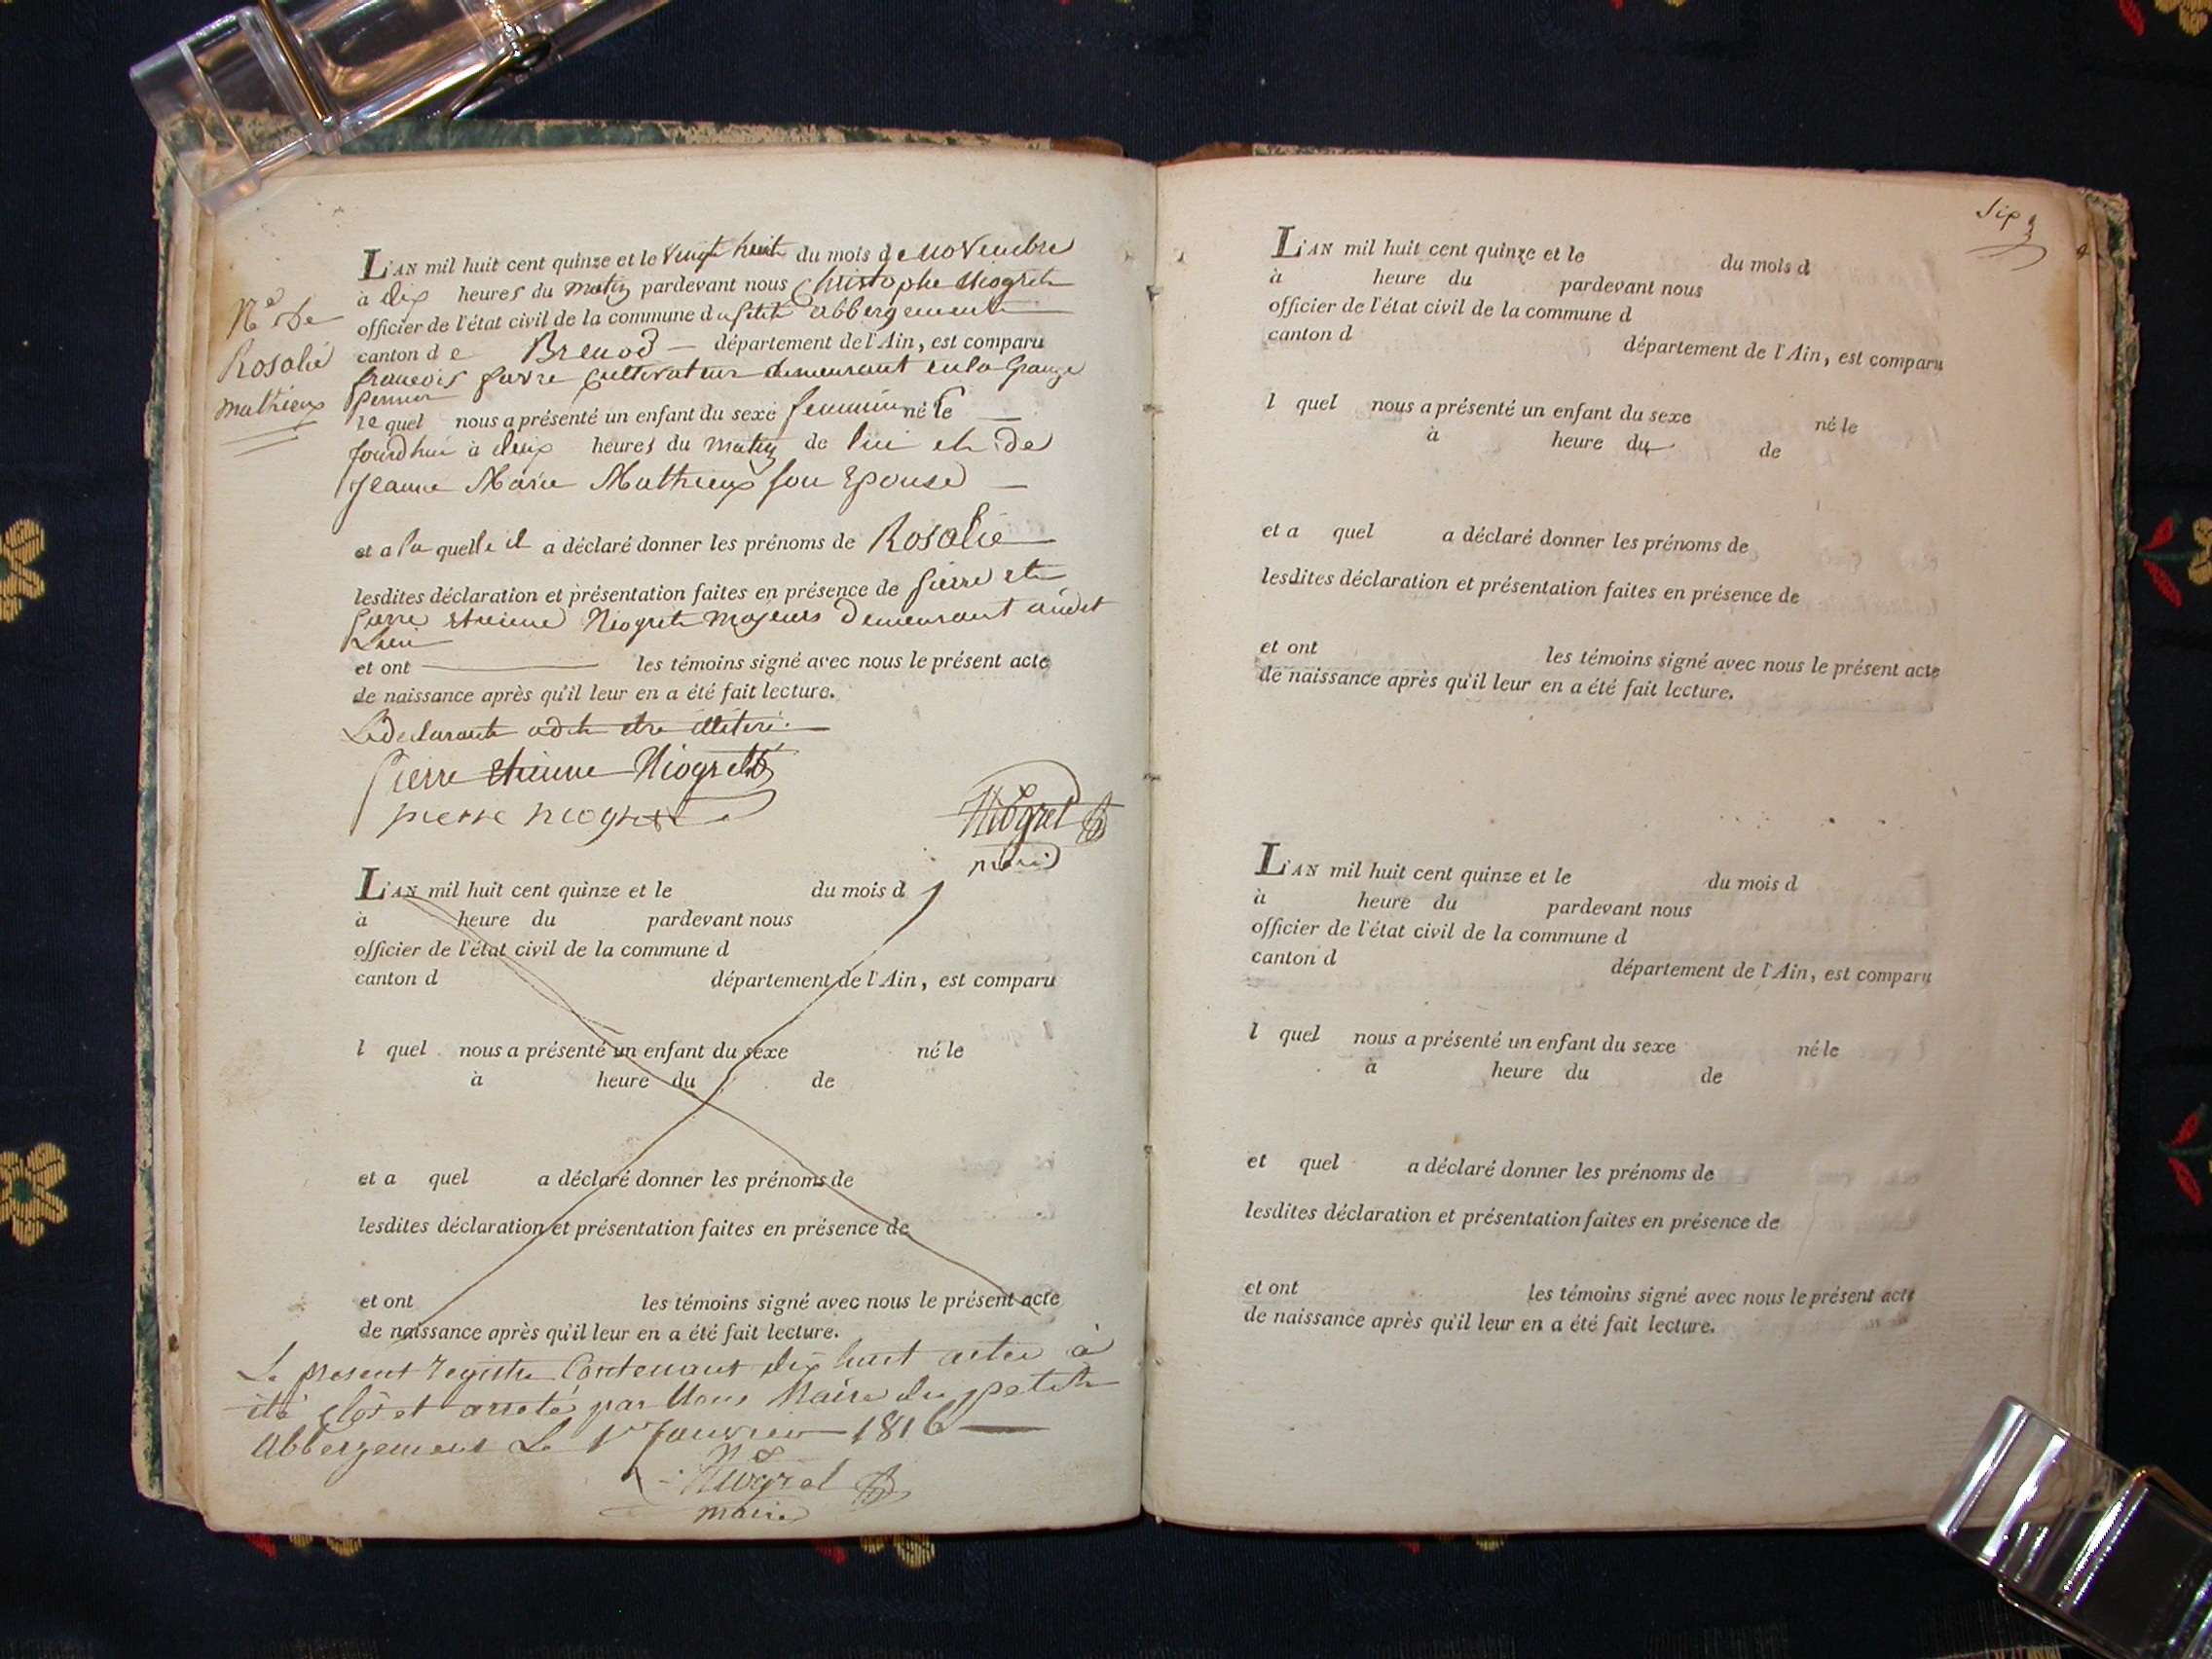 Nce de
Rosalie
Mathieux
L'AN mil huit cent quinze et le vingt huit du mois de novembre
à dix heures du matin pardevant nous Christophe Niogret
officier de l'état civil de la commune du petit abbergement
canton de Brenod département de l'Ain, est comparu
françois favre Cultivateur demeurant en la Grange
perrier
lequel nous a présenté un enfant du sexe feminin né le
jourdhui à deux heures du matin de lui et de
Jeanne Marie Mathieux son Epouse
et a la quelle il a déclaré donner les prénoms de Rosalie
lesdites déclaration et présentation faites en présence de pierre et
pierre etienne Niogret majeurs demeurant audit
Lieu
et ont les témoins signé avec nous le présent acte
de naissance après qu'il leur en a été fait lecture.
Le declarant a dit etre illiteré.
Pierre etienne Niogret
pierre niogret
Niogret
maire
L'AN mil huit cent quinze et le du mois d
à heure du pardevant nous
officier de l'état civil de la commune d
canton d département de l'Ain, est comparu
l quel nous a présenté un enfant du sexe né le
à heure du de
et a quel a déclaré donner les prénoms de
lesdites déclaration et présentation faites en présence de
et ont les témoins signé avec nous le présent acte
de naissance après qu'il leur en a été fait lecture.
Le present registre Contenant dix huit actes à
été clos et arreté par Nous Maire du petit
Abbergement Le 1er Janvier 1816
Niogret
maire
Six
L'AN mil huit cent quinze et le du mois d
à heure du pardevant nous
officier de l'état civil de la commune d
canton d département de l'Ain, est comparu
l quel nous a présenté un enfant du sexe né le
à heure du de
et a quel a déclaré donner les prénoms de
lesdites déclaration et présentation faites en présence de
et ont les témoins signé avec nous le présent acte
de naissance après qu'il leur en a été fait lecture.
L'AN mil huit cent quinze et le du mois d
à heure du pardevant nous
officier de l'état civil de la commune d
canton d département de l'Ain, est comparu
l quel nous a présenté un enfant du sexe né le
à heure du de
et quel a déclaré donner les prénoms de
lesdites déclaration et présentation faites en présence de
et ont les témoins signé avec nous le présent acte
de naissance après qu'il leur en a été fait lecture.